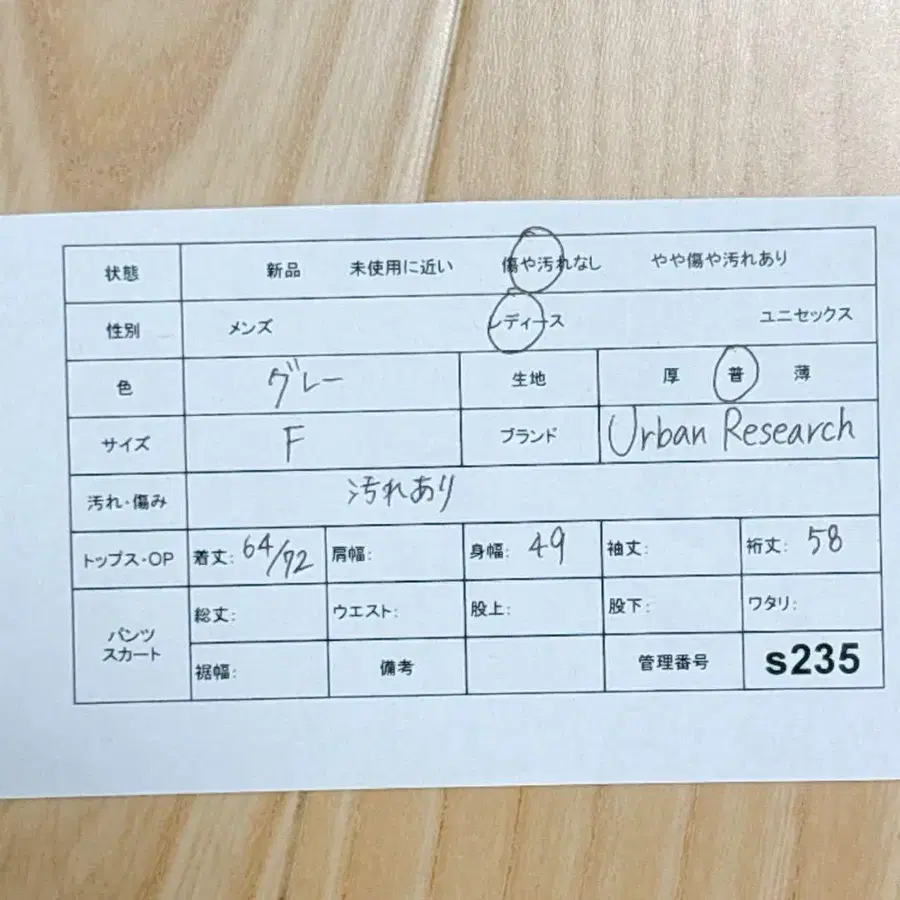 状態 新品 未使用に近い 傷や汚れなし やや傷や汚れあり
性別 メンズ レディース ユニセックス
色 グレー 生地 厚 普 薄
サイズ F ブランド Urban Research
汚れ・傷み 汚れあり
トップス・OP 着丈: 64/72 肩幅: 身幅: 49 袖丈: 裄丈: 58
パンツ スカート 総丈: ウエスト: 股上: 股下: ワタリ:
裾幅: 備考 管理番号 s235